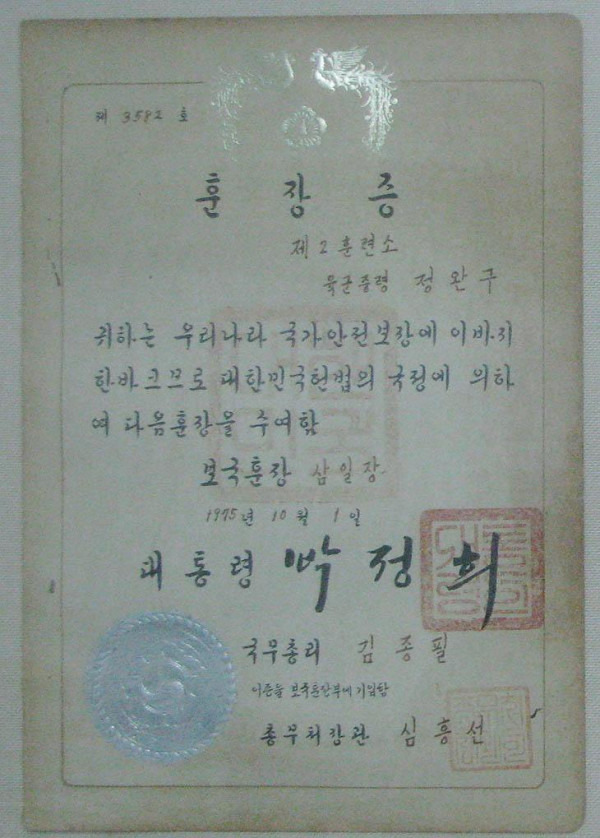 제 3582 호
훈장증
제2훈련소
육군중령 정완구
귀하는 우리나라 국가안전보장에 이바지
한바 크므로 대한민국헌법의 규정에 의하
여 다음훈장을 수여함
보국훈장 삼일장
1975년 10월 1일
대통령 박정희
국무총리 김종필
이증을 보국훈장부에 기입함
총무처장관 심흥선